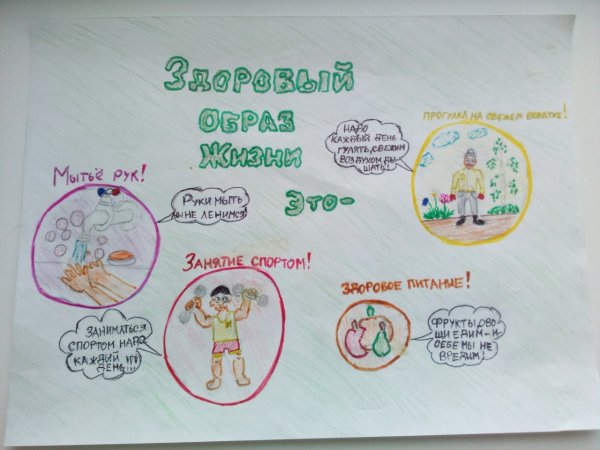 Здоровый
образ
жизни
это-
Прогулка на свежем воздухе!
Надо
каждый день
гулять, свежим
воздухом ды
шать!
Мытьё рук!
Руки мыть
мы не ленимся!
Занятие спортом!
Заниматься
спортом надо
каждый
день!!!
Здоровое питание!
Фрукты, ово-
щи едим - и
себе мы не
вредим!